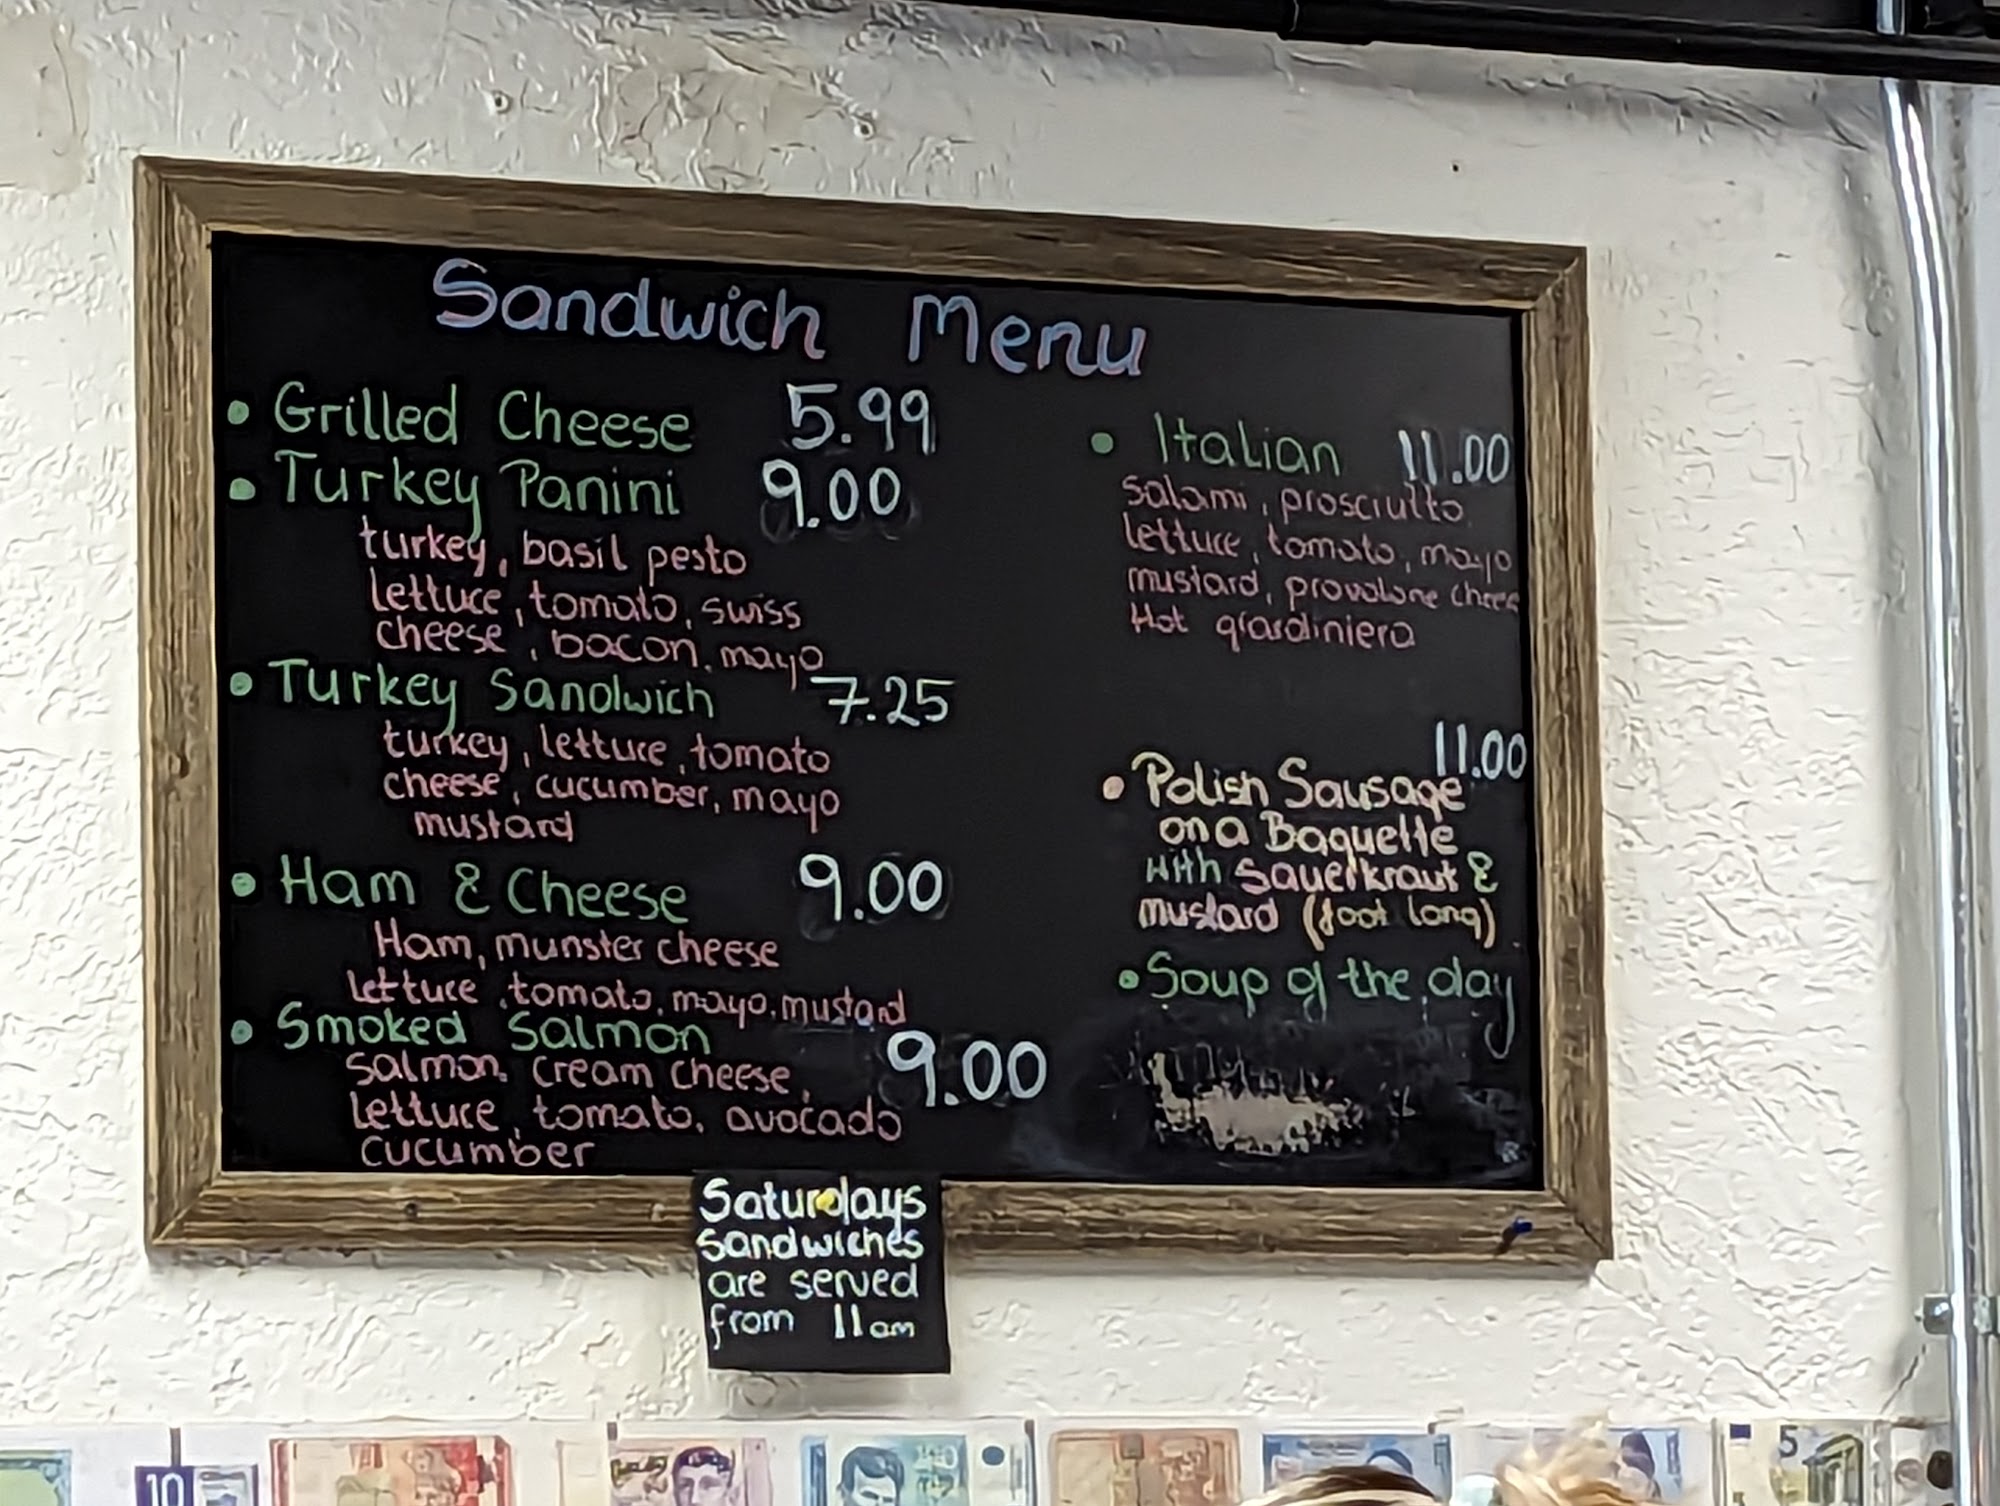 Sandwich Menu
• Grilled Cheese 5.99
• Turkey Panini 9.00
turkey, basil pesto
lettuce, tomato, swiss
cheese, bacon, mayo
• Turkey Sandwich 7.25
turkey, lettuce, tomato
cheese, cucumber, mayo
mustard
• Ham & Cheese 9.00
Ham, munster cheese
lettuce, tomato, mayo, mustard
• Smoked Salmon 9.00
salmon, cream cheese,
lettuce, tomato, avocado
cucumber
• Italian 11.00
salami, prosciutto
lettuce, tomato, mayo
mustard, provolone cheese
Hot giardiniera
11.00
• Polish Sausage
on a Baguette
with Sauerkraut &
mustard (foot long)
• Soup of the day
Saturdays
Sandwiches
are served
from 11am
10
5